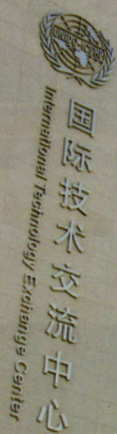 国际技术交流中心
International Technology Exchange Center